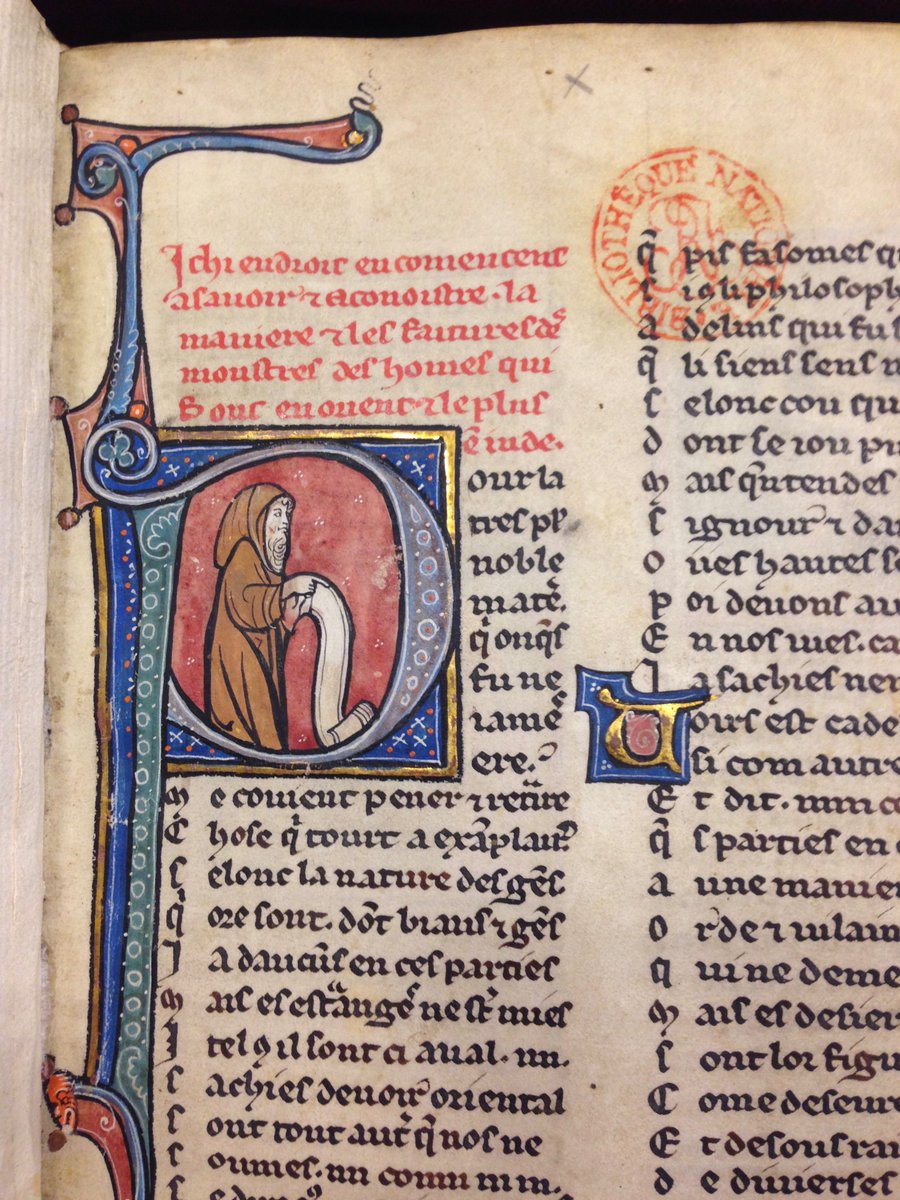 Ichi endroit encomencent
a savoir ⁊ aconoistre . la
maniere ⁊ les faitures des̄
moustres des homes qui
Sont en orient ⁊ le plus
ē iude.
our la
tres pl᾽
noble
matē.
q̄ onq̄s
fu ne
iamē
ere.
M e couient pener ⁊ retͣire
C hose q̄ tourt a exāplair᾽
S elonc la nature des gēs
Q̄ ore sont. dōt biaus ⁊ gēs
I a daucūs en ces parties
M ais es estͣange᾽ ne st᾽ mies
I tel q̄l sont ci aual.
S achies deuoir᾽ oriental
S ont tout aut᾽ q̄ nos ne
S oumes.
BIBLIOTHEQUE NATION
Q̄ pis faisomes q
S philosoph
A delins qui fu s
Q̄ li siens sens n
S elonc cou qu
D ont se iou pu
M ais q̄ntendes
S ignour᾽ ⁊ da
O ues hautes s
P oi deuons au
E n nos ca
I a sachies ner
U ours est cade
si com autre
E t dit.
Q̄ s parties en
A une manier
O r᾽de ⁊ uilain
Q ui ne deme
M ais es desier
S ont lor figu
C ome deseure
E t desous
D e diuerses